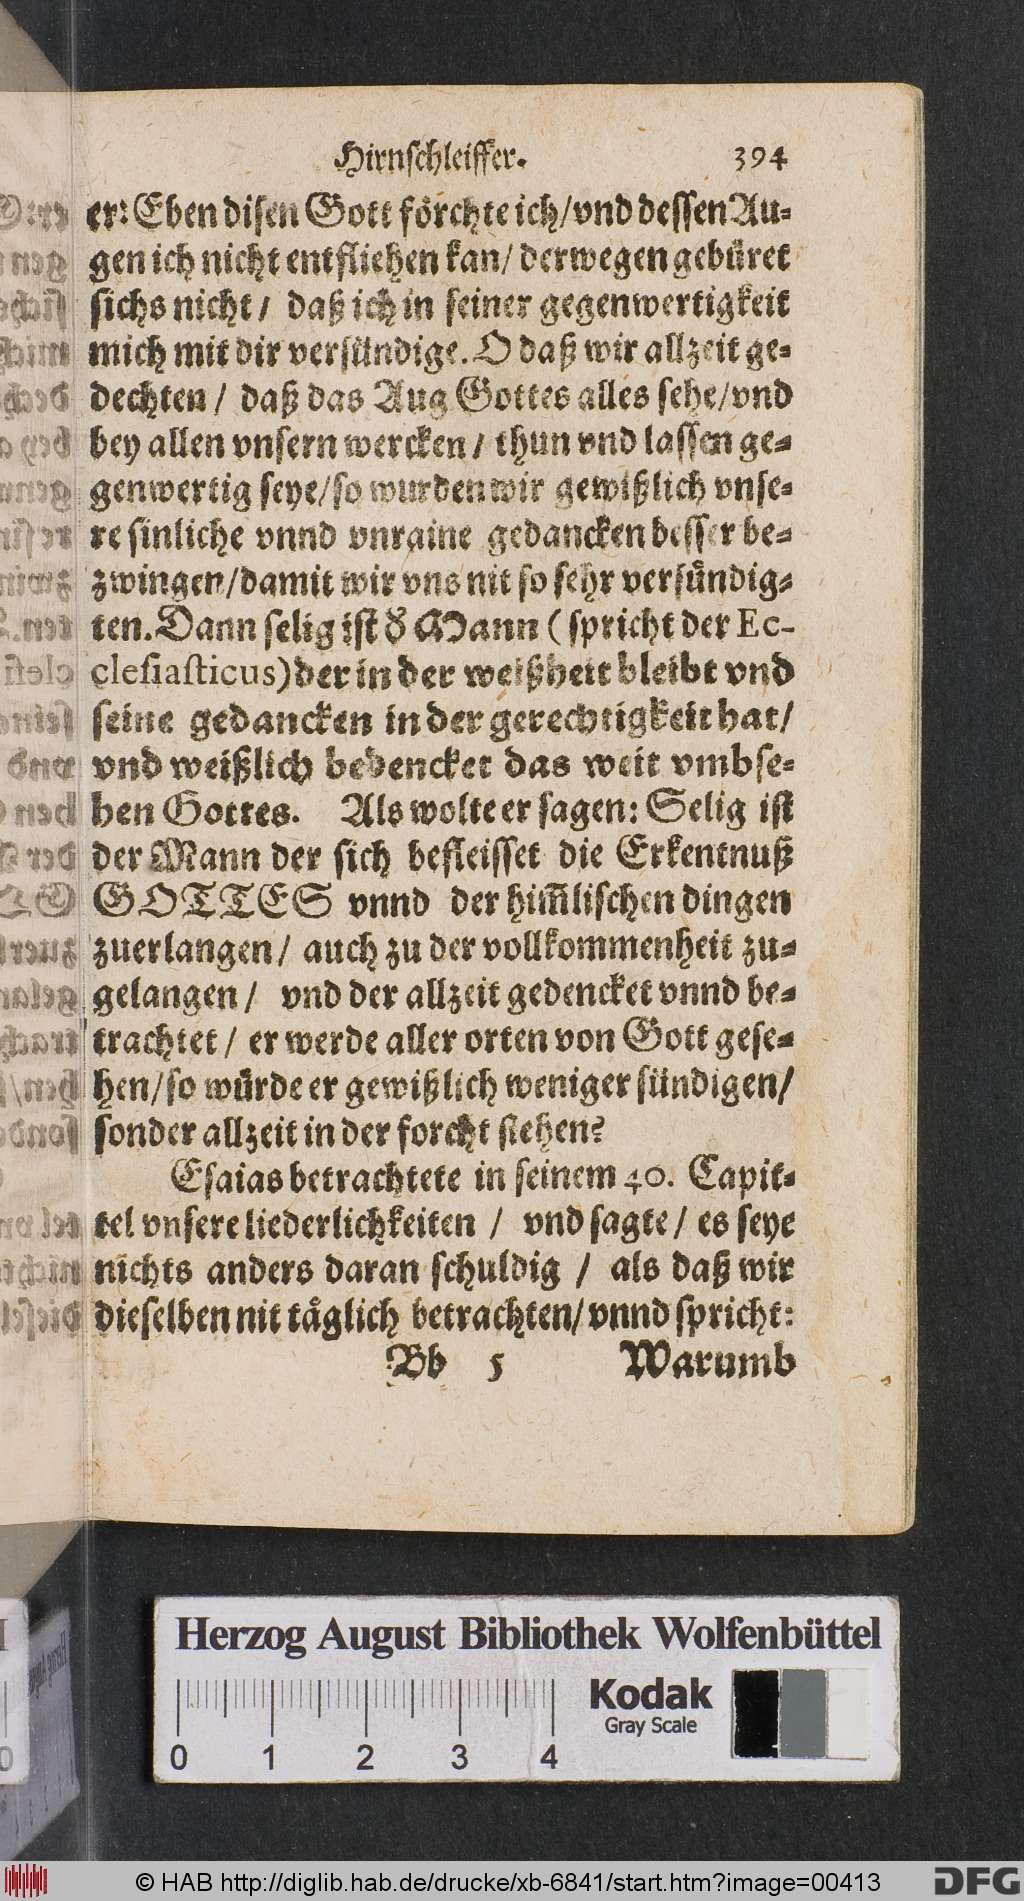 Hirnschleiffer. 394
er: Eben disen Gott förchte ich/vnd dessen Au-
gen ich nicht entfliehen kan/ derwegen gebüret
sichs nicht / daß ich in seiner gegenwertigkeit
mich mit dir versündige. O daß wir allzeit ge-
dechten / daß das Aug Gottes alles sehe/vnd
bey allen vnsern wercken / thun vnd lassen ge-
genwertig seye/so wurden wir gewißlich vnse-
re sinliche vnnd vnraine gedancken besser be-
zwingen/damit wir vns nit so sehr versündig-
ten. Dann selig ist d̕ Mann ( spricht der Ec-
clesiasticus) der in der weißheit bleibt vnd
seine gedancken in der gerechtigkeit hat/
vnd weißlich bedencket das weit vmbse-
hen Gottes. Als wolte er sagen: Selig ist
der Mann der sich befleisset die Erkentnuß
GOTTES vnnd der him̄lischen dingen
zuerlangen / auch zu der vollkommenheit zu-
gelangen / vnd der allzeit gedencket vnnd be-
trachtet / er werde aller orten von Gott gese-
hen/so würde er gewißlich weniger sündigen/
sonder allzeit in der forcht stehen?
Esaias betrachtete in seinem 40. Capit-
tel vnsere liederlichkeiten / vnd sagte / es seye
nichts anders daran schuldig / als daß wir
dieselben nit täglich betrachten/ vnnd spricht:
Bb 5 Warumb
Herzog August Bibliothek Wolfenbüttel
Kodak
Gray Scale
0 1 2 3 4
© HAB http://diglib.hab.de/drucke/xb-6841/start.htm?image=00413
DFG